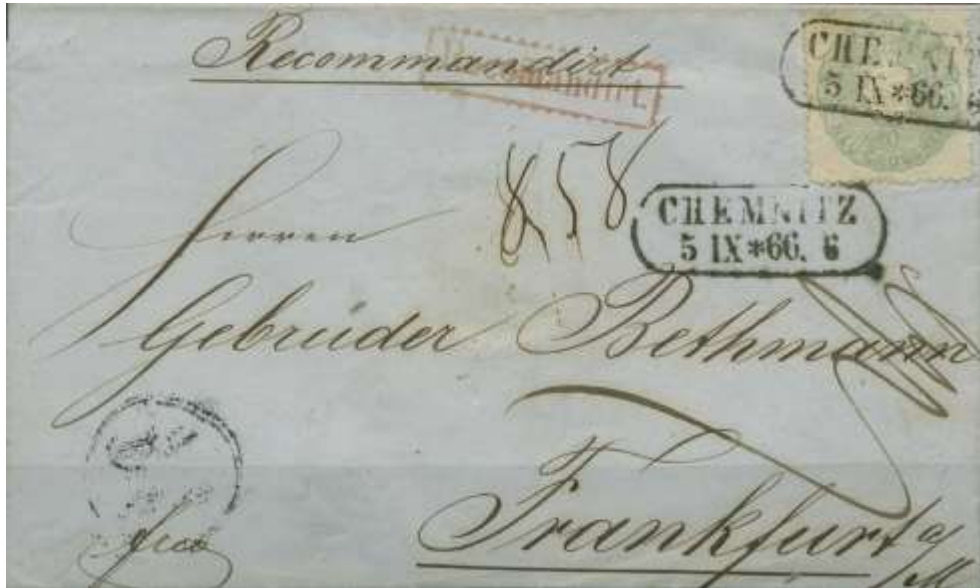 Recommandirt
CHEMNITZ
5 IX *66. 6
858
CHEMNITZ
5 IX *66. 6
Herren
Gebrüder Bethmann
Frankfurt a/M
fco